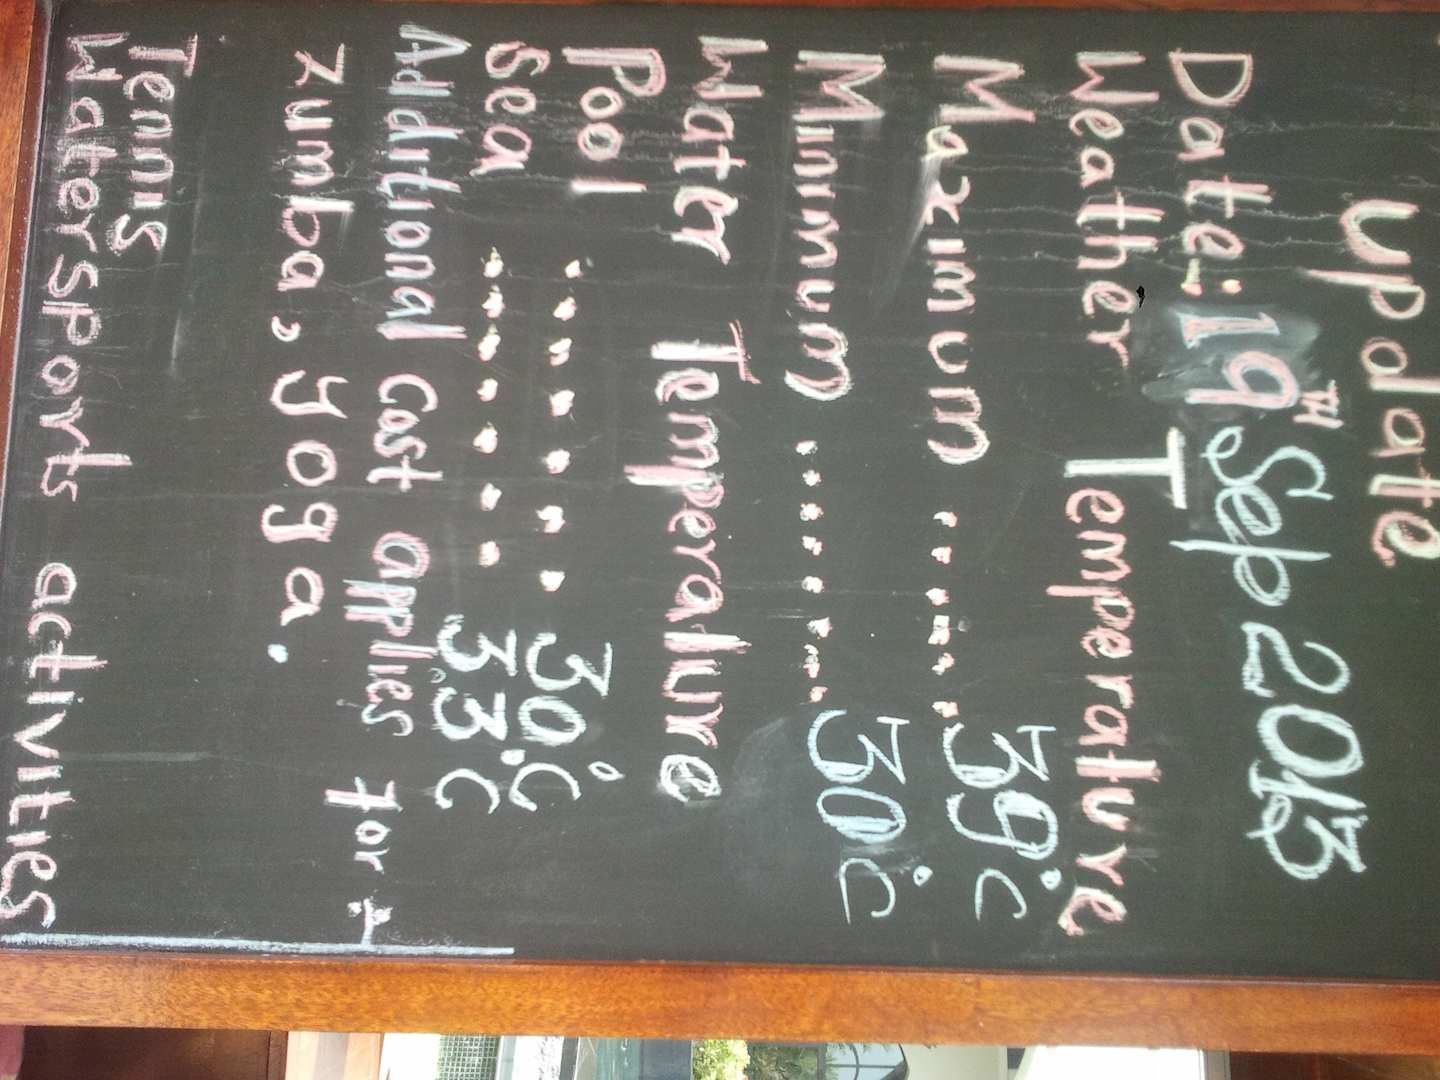 update
Date: 19TH Sep 2013
Weather Temperature
Maximum ..... 39°c
Minimum ........ 30°c
Water Temperature
Pool ....... 30°c
Sea ....... 33°c
Additional cost applies for :-
Zumba, yoga.
Tennis
Watersports activities